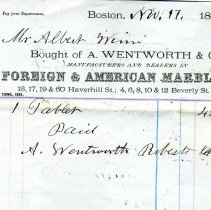 Pay your Expressman.
Boston, Nov. 17. 18
Mr Albert Winn
Bought of A. WENTWORTH & C
MANUFACTURERS AND DEALERS IN
FOREIGN & AMERICAN MARBL
15, 17, 19 & 60 Haverhill St.; 4, 6, 8, 10 & 12 Beverly St.
TERMS, CASH.
1 Tablet
Paid
A. Wentworth